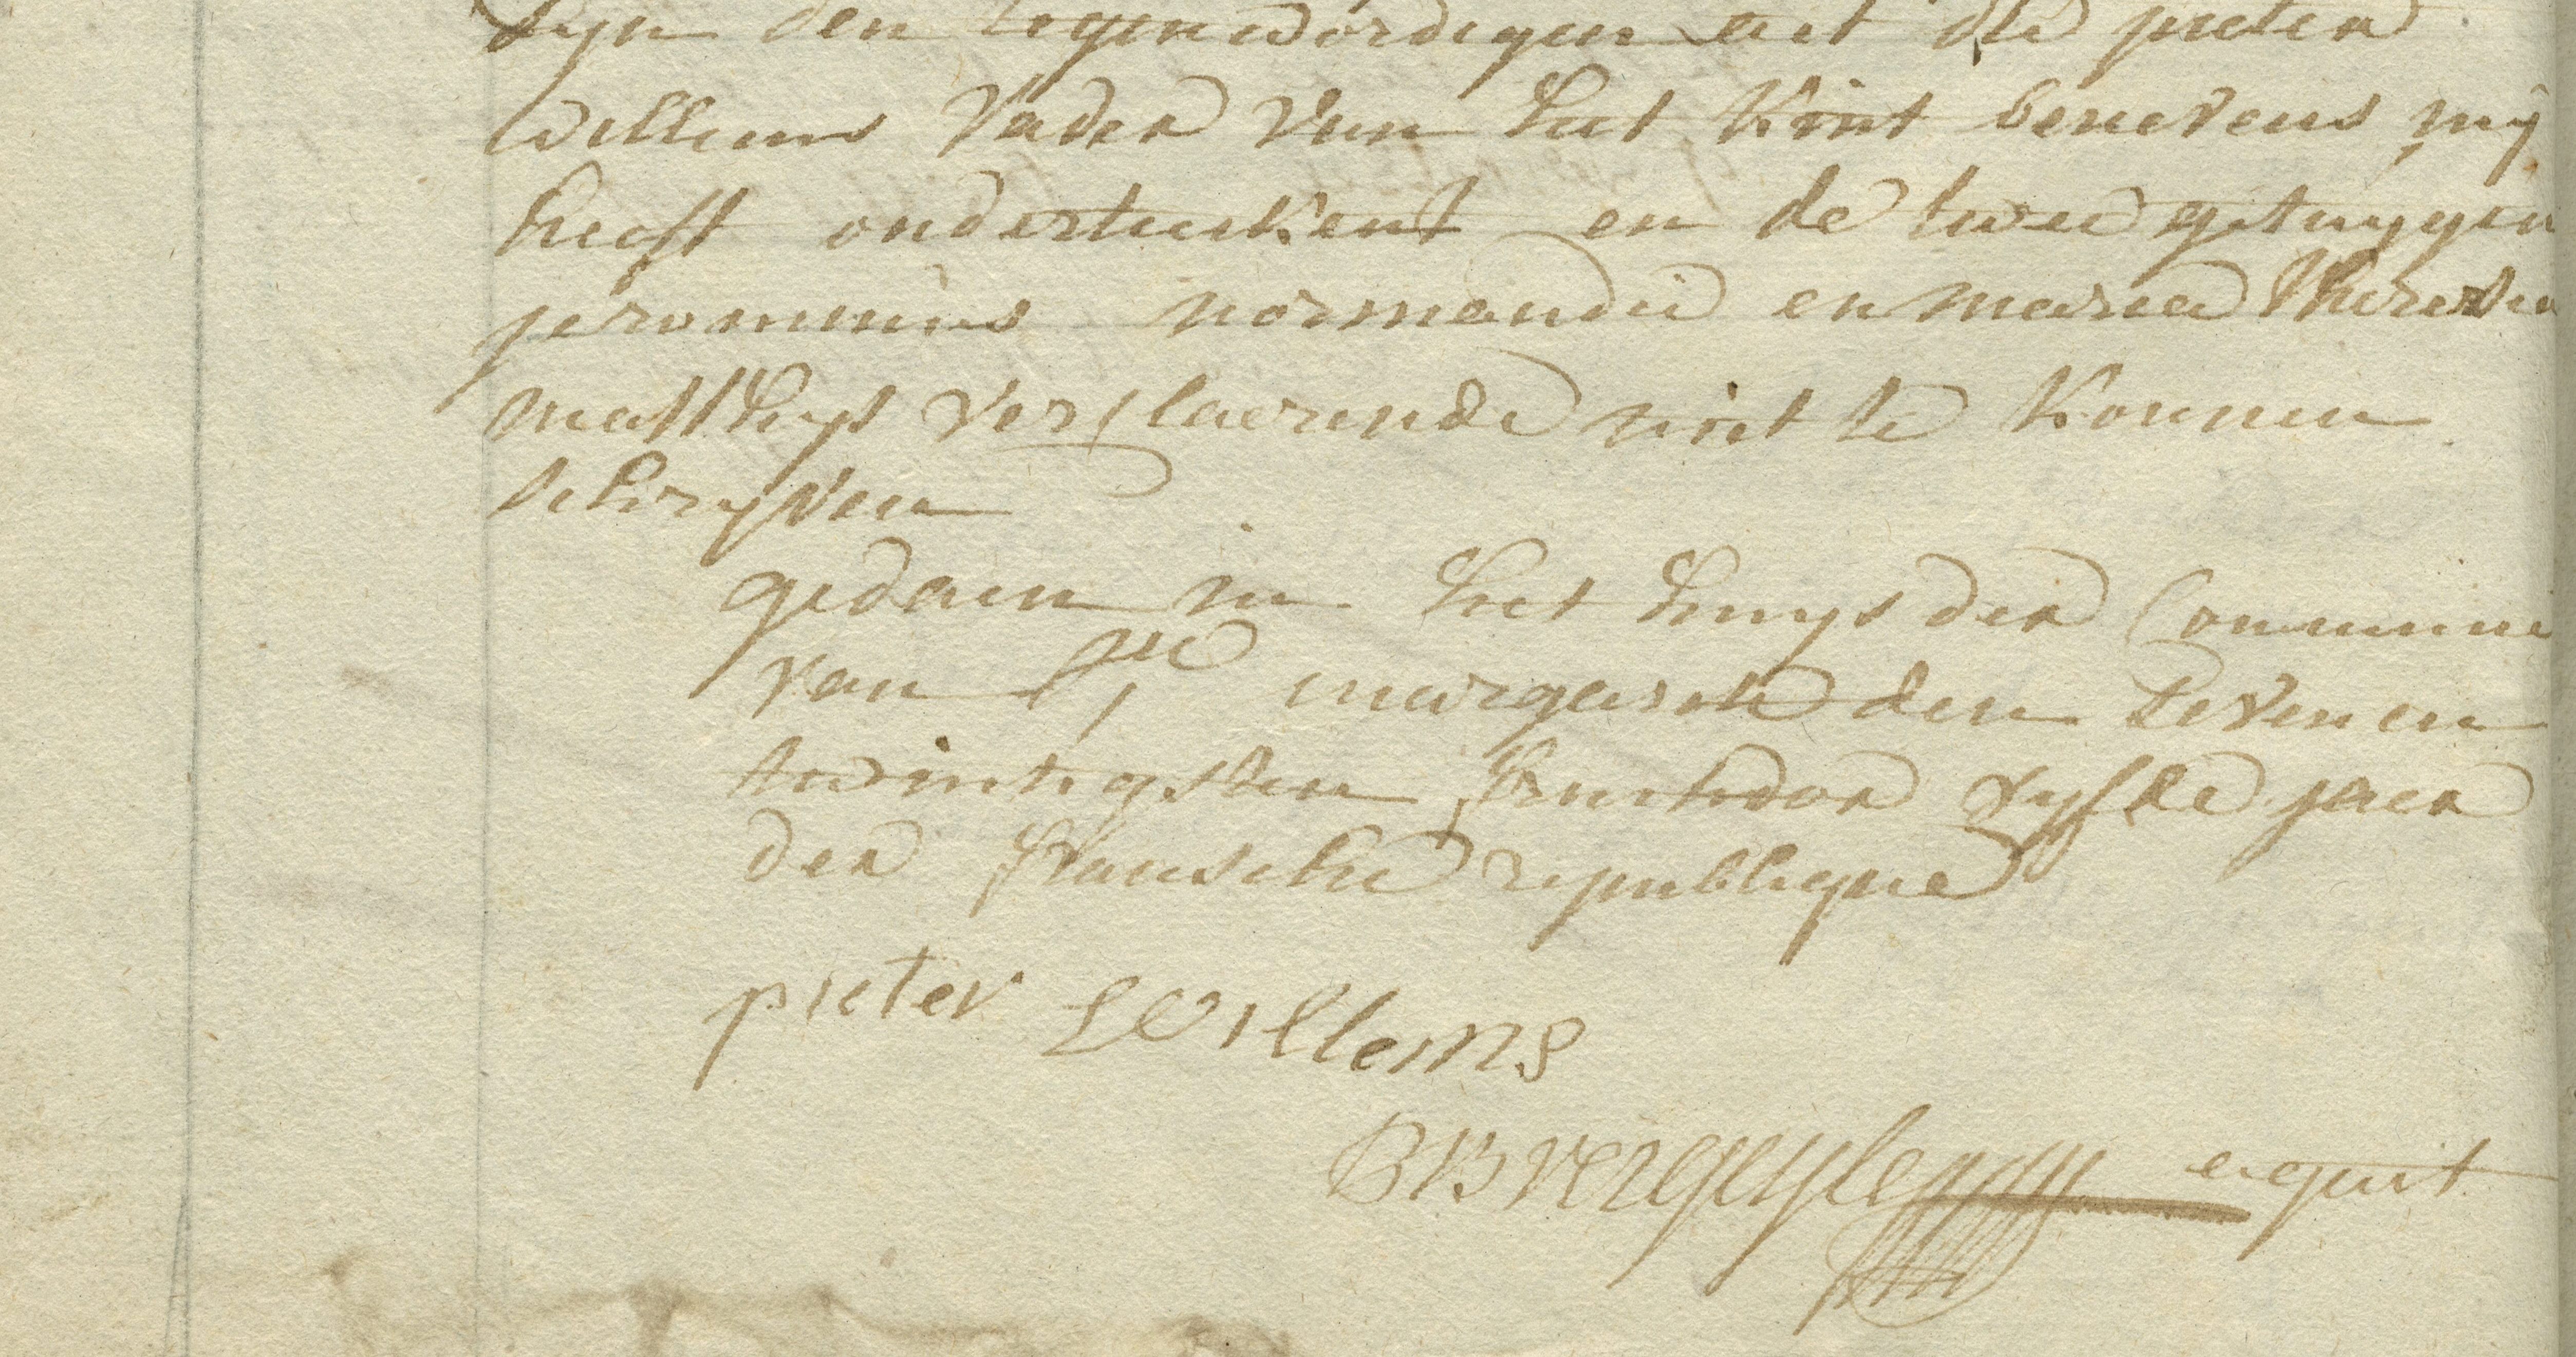 syn den tegenwordigen act die pieter
willems vader van het kint benevens mÿ
heeft onderteekent en de twee getuygen
jeronimus normandie en maria theresia
matthys verclaerende niet te konnen
schryven
gedaen in het huys der Commune
van Ste margarite den seven en
twintigsten fructidor vyfde jaer
der fransche republique
pieter Willems
agent